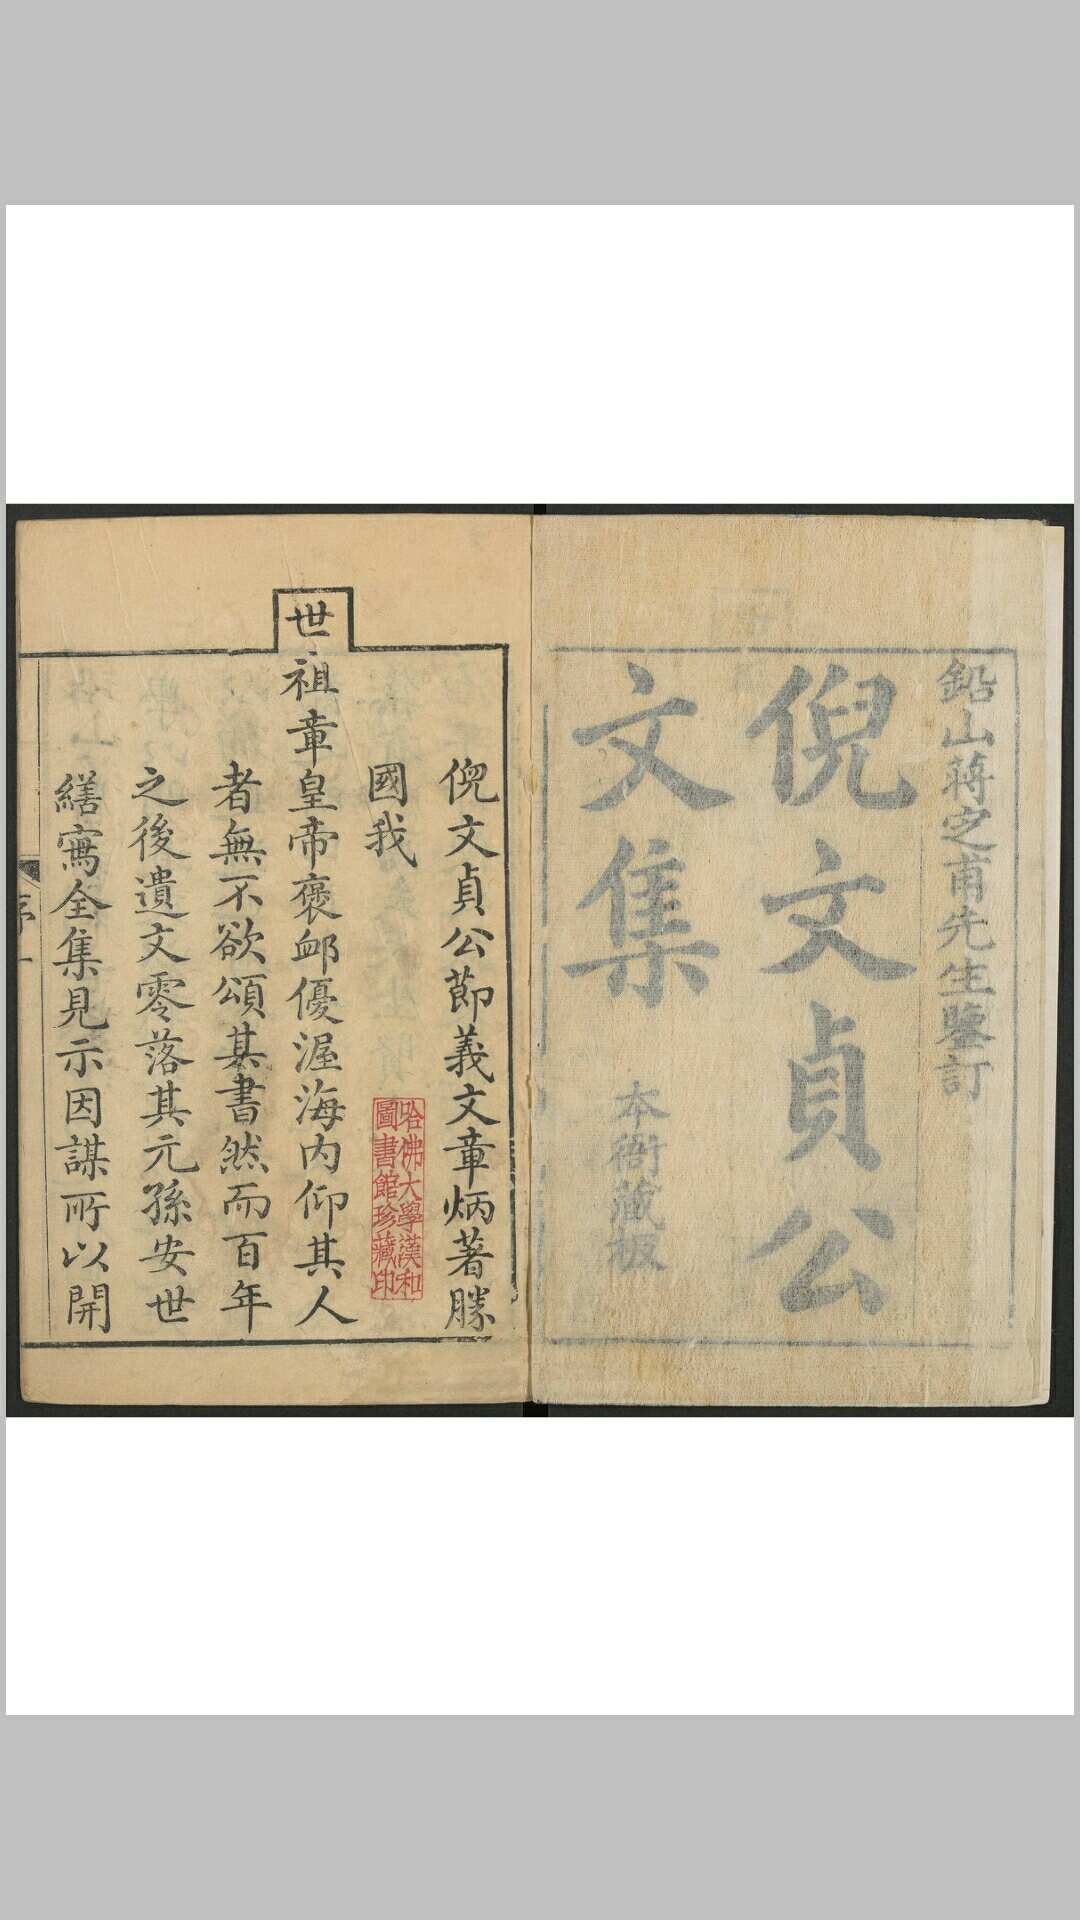 鉛山蔣之甫先生鑒訂
倪文貞公
文集
本衙藏板
倪文貞公節義文章炳著勝
國我
世祖章皇帝褒卹優渥海内仰其人
者無不欲頌其書然而百年
之後遺文零落其元孫安世
繕寫全集見示因謀所以開
序一
哈佛大學漢和
圖書館珍藏印